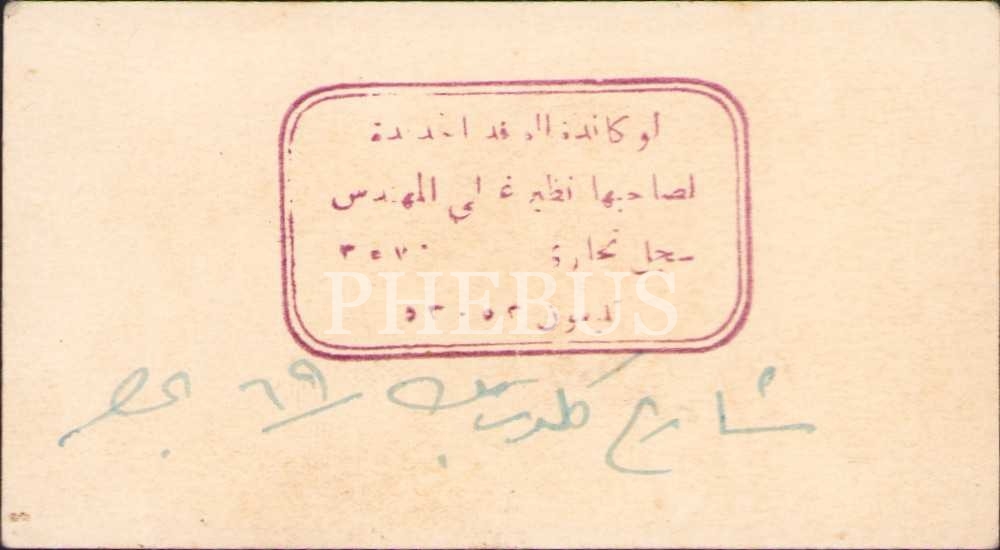 لوكاندة الوفد الجديدة
لصاحبها نظير غالي المهندس
سجل تجارة ٣٥٧٠
PHEBUS
تليفون ٥٣٠٥٢
شارع كلوت بك ٦٩ بمصر